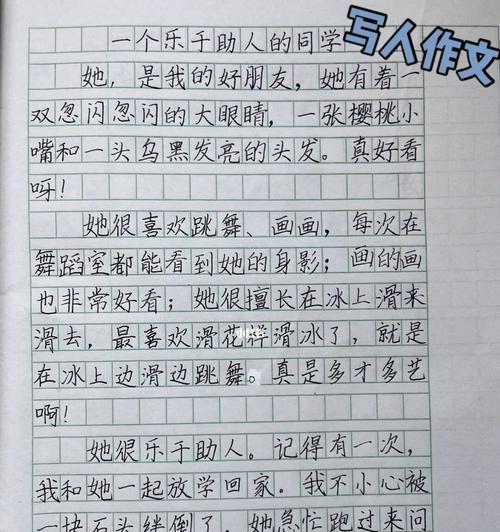 写人作文
一个乐于助人的同学
她，是我的好朋友，她有着一
双忽闪忽闪的大眼睛，一张樱桃小
嘴和一头乌黑发亮的头发。真好看
呀！
她很喜欢跳舞、画画，每次在
舞蹈室都能看到她的身影；画的画
也非常好看；她很擅长在冰上滑来
滑去，最喜欢滑花样滑冰了，就是
在冰上边滑边跳舞。真是多才多艺
啊！
她很乐于助人。记得有一次，
我和她一起放学回家。我不小心被
一块石头绊倒了，她急忙跑过来问